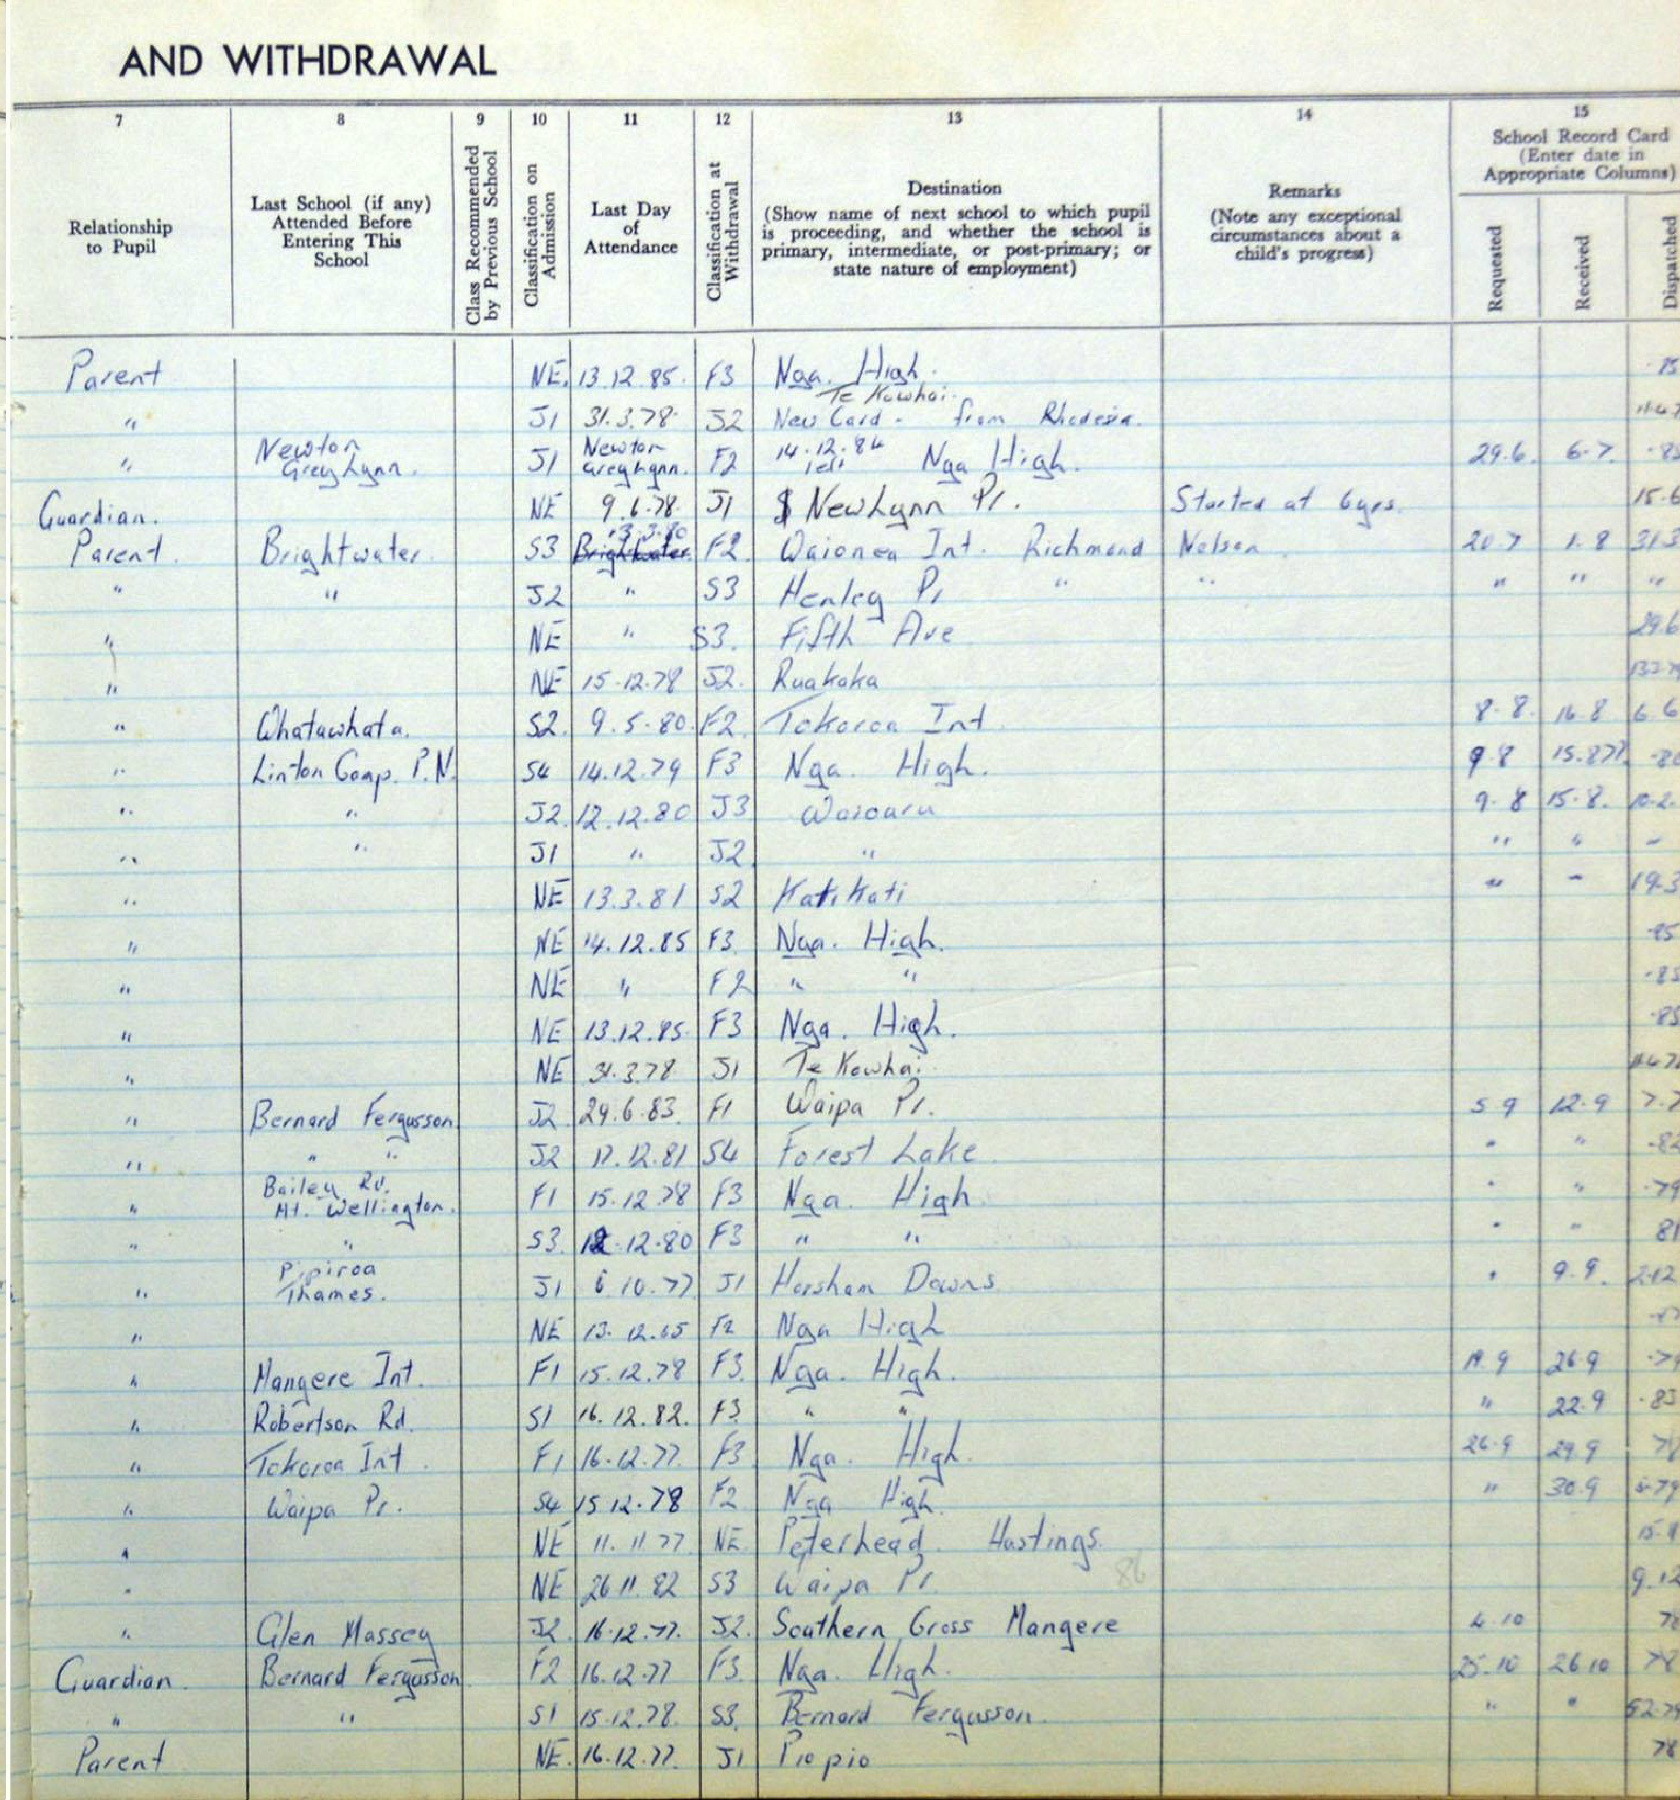 AND WITHDRAWAL
7 8 9 10 11 12 13 14 15
Relationship to Pupil
Last School (if any) Attended Before Entering This School
Class Recommended by Previous School
Classification on Admission
Last Day of Attendance
Classification at Withdrawal
Destination
(Show name of next school to which pupil is proceeding, and whether the school is primary, intermediate, or post-primary; or state nature of employment)
Remarks
(Note any exceptional circumstances about a child's progress)
School Record Card
(Enter date in Appropriate Columns)
Requested Received Dispatched
Parent NE. 13.12.85. F3 Nga. High.
Te Kowhai.
" J1 31.3.78. J2 New Card - from Rhodesia.
" Newton Grey Lynn. J1 Newton Grey Lynn. F2 14.12.84 Nga High. 29.6. 6.7.
Guardian. NE 9.6.78. J1 New Lynn Pr. Started at 6yrs. 15.6
Parent. Brightwater. S3 Brightwater 3.3.80 F2. Waionea Int. Richmond Nelson 20.7 1.8 31.3
" " J2 " S3 Henley Pr " " " " "
" NE " S3. Fifth Ave 29.6
" NE 15.12.78 J2. Ruakaka
" Whatawhata. S2. 9.5.80. F2. Tokoroa Int. 8.8. 16.8 6.6
" Linton Comp. P.N. S4 14.12.79 F3 Nga. High. 9.8 15.877. -80
" " J2. 12.12.80 J3 Waioaru 9.8 15.8. 10.2.
" " J1 " J2 " " " -
" NE 13.3.81 S2 Katikati " - 19.3
" NE 14.12.85 F3. Nga. High. -85
" NE " F2 " " -85
" NE 13.12.85. F3 Nga. High. -85
" NE 31.3.78 J1 Te Kowhai
" Bernard Fergusson J2. 29.6.83. F1 Waipa Pr. 5 9 12.9 7.7
" " " J2 17.12.81 S4 Forest Lake. " " -82
" Bailey Rd. Mt. Wellington. F1 15.12.78 F3 Nga. High. " " -79
" " S3. 12.12.80 F3 " " " " 81
" Pipiroa Thames. J1 6 10.77 J1 Horsham Downs " 9.9. 2.12
" NE 13.12.85 F2 Nga High
" Mangere Int. F1 15.12.78 F3. Nga. High. 19.9 26.9 -79
" Robertson Rd. S1 16.12.82. F3 " " " 22.9 -83
" Tokoroa Int. F1 16.12.77. F3 Nga. High. 26.9 29.9 78
" Waipa Pr. S4 15 12.78 F2 Nga High. " 30.9
" NE 11.11 77 NE Peterhead. Hastings.
" NE 26 11.82 S3 Waipa Pr. 86 9.12
" Glen Massey J2. 16.12.77. J2. Southern Cross Mangere 4.10 78
Guardian. Bernard Fergusson F2 16.12.77 F3. Nga. High. 25.10 26 10 78
" " S1 15.12.78. S3. Bernard Fergusson. " "
Parent NE. 16.12.77. J1 Piopio 78